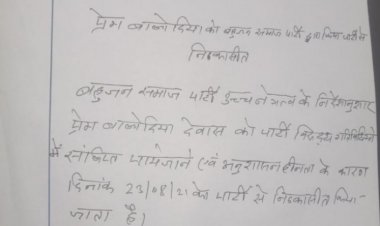 प्रेम बाबोदिया को बहुजन समाज पार्टी द्वारा किया पार्टी से
निष्कासीत
बहुजन समाज पार्टी उच्च नेत्रत्व के निर्देशानुशार
प्रेम बाबोदिया देवास को पार्टी विरुद्ध गतिविधियो
में संलिप्त पायेजाने एवं अनुशासन हीनता के कारण
दिनांक 23/08/21 को पार्टी से निष्कासीत किया
जाता है।